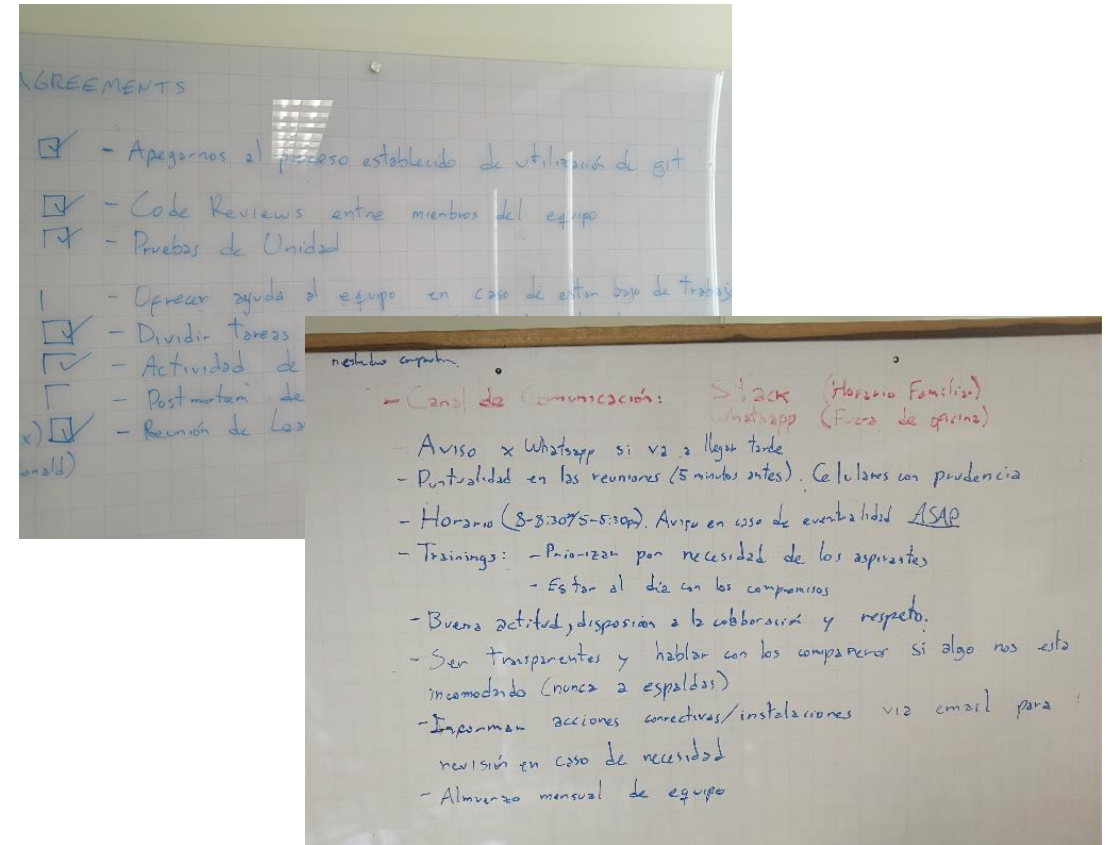 AGREEMENTS
- Apegarnos al proceso establecido de utilización de git
- Code Reviews entre miembros del equipo
- Pruebas de Unidad
- Ofrecer ayuda al equipo en caso de estar bajo de trabaj
- Dividir tareas
- Actividad de
- Postmortem de
x) - Reunión de
onald)
- Canal de Comunicación: Slack (Horario Familiar)
Whatsapp (Fuera de oficina)
- Aviso x Whatsapp si va a llegar tarde
- Puntualidad en las reuniones (5 minutos antes). Celulares con prudencia
- Horario (8-8:30/5-5:30p). Aviso en caso de eventualidad ASAP
- Trainings: - Priorizar por necesidad de los aspirantes
- Estar al día con los compromisos
- Buena actitud, disposición a la colaboración y respeto.
- Ser transparentes y hablar con los compañeros si algo nos esta
incomodando (nunca a espaldas)
- Informar acciones correctivas/instalaciones via email para
revisión en caso de necesidad
- Almuerzo mensual de equipo